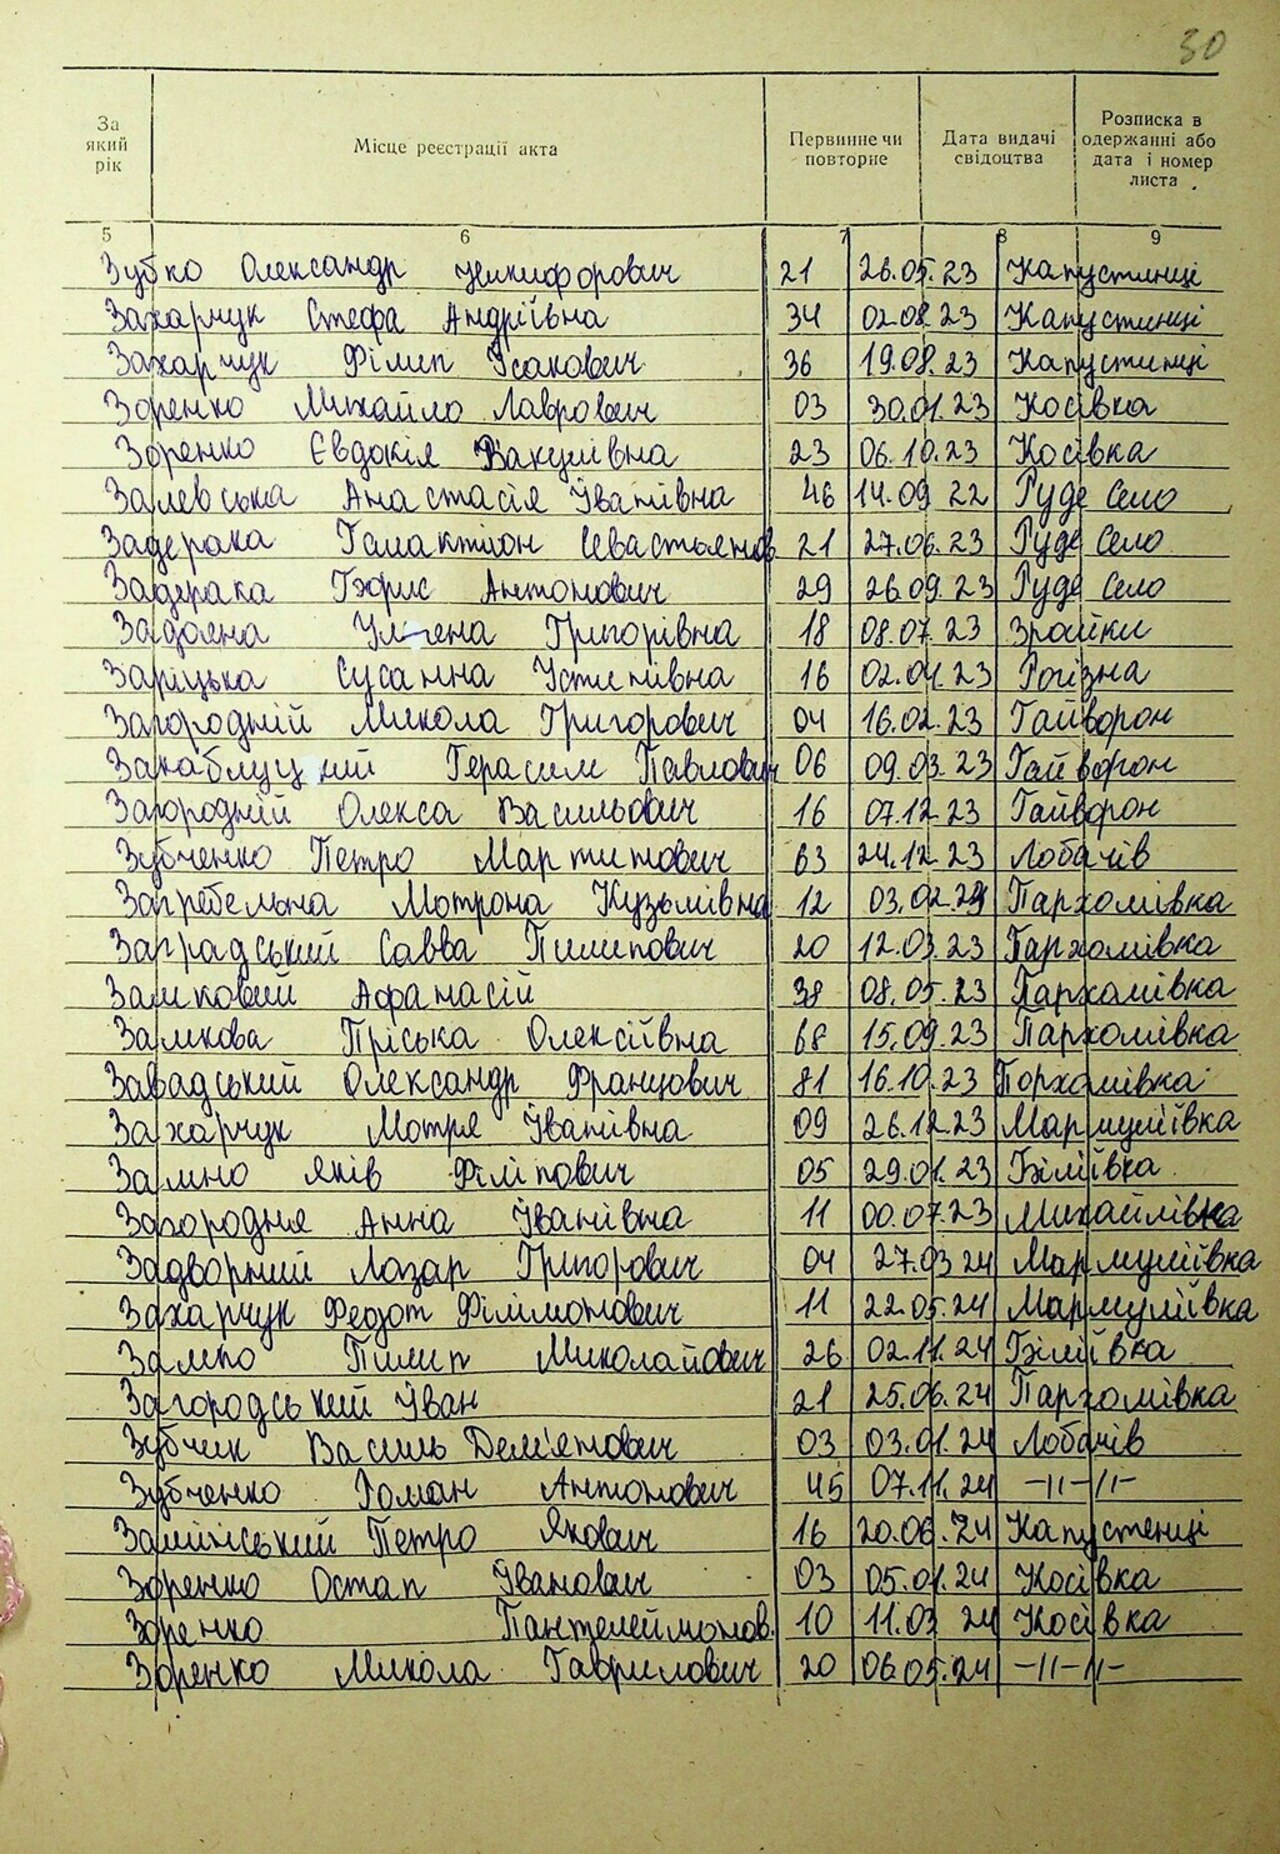 30
За який рік
Місце реєстрації акта
Первинне чи повторне
Дата видачі свідоцтва
Розписка в одержанні або дата і номер листа
5 6 7 8 9
Зубко Олександр Никифорович 21 26.05.23 Капустинці
Захарчук Стефа Андріївна 34 02.08.23 Капустинці
Захарчук Філип Ісакович 36 19.08.23 Капустинці
Зоренко Михайло Лаврович 03 30.01.23 Косівка
Зоренко Євдокія Вакулівна 23 06.10.23 Косівка
Залевська Анастасія Іванівна 46 14.09 22 Руде Село
Задерака Галактіон Севастьянов 21 27.06.23 Руде Село
Задерака Антонович 29 26.09.23 Руде Село
Задояна Григорівна 18 08.07.23 Зрайки
Заріцька Сусанна Устинівна 16 02.04.23 Рогізна
Загородній Микола Григорович 04 16.02.23 Гайворон
Закаблуцкий Герасим Павлович 06 09.03.23 Гайворон
Загородній Олекса Васильович 16 07.12.23 Гайворон
Зубченко Петро Мартинович 63 24.12.23 Лобачів
Загребельна Мотрона Кузьмівна 12 03.02.23 Пархомівка
Заградський Савва Пилипович 20 12.03.23 Пархомівка
Замковий Афанасій 38 08.05.23 Пархомівка
Замкова Пріська Олексіївна 68 15.09.23 Пархомівка
Завадський Олександр Францович 81 16.10.23 Порхомівка
Захарчук Мотря Іванівна 09 26.12.23 Мармуліївка
Замно Яків Філіпович 05 29.01.23 Біліївка
Загородня Анна Іванівна 11 00.07.23 Михайлівка
Задворний Лазар Григорович 04 27.03 24 Мармуліївка
Захарчук Федот Філімонович 11 22.05.24 Мармуліївка
Замно Пилип Миколайович 26 02.11.24 Біліївка
Загородський Іван 21 25.06.24 Пархомівка
Зубчик Василь Дем'янович 03 03.01.24 Лобачів
Зубченко Роман Антонович 45 07.11.24 -11-11-
Замінський Петро Якович 16 20.06.24 Капустенці
Зоренко Остап Іванович 03 05.01.24 Косівка
Зоренко Пантелеймонов. 10 11.03 24 Косівка
Зоренко Микола Гаврилович 20 06.05.24 -11-11-